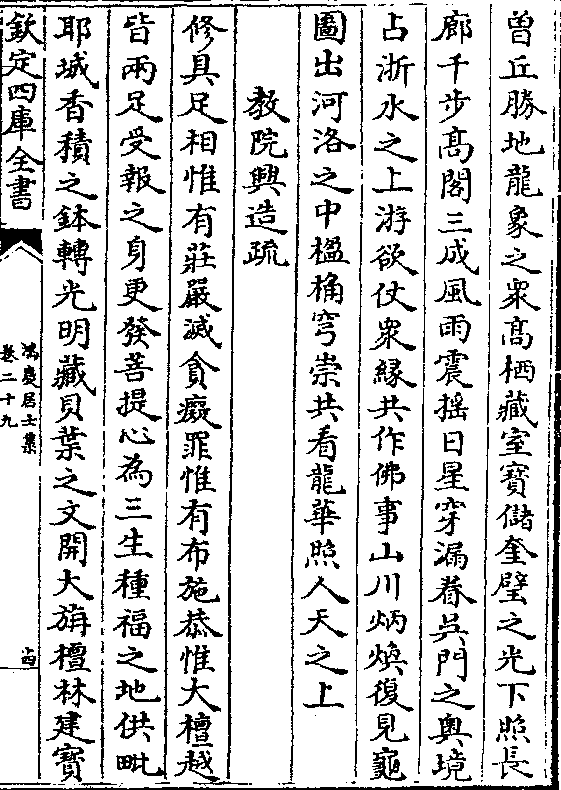 曽丘勝地龍象之衆髙栖藏室寶儲奎璧之光下照長
廊千步髙閣三成風雨震揺日星穿漏眷呉門之奥境
占浙水之上游欲仗衆縁共作佛事山川炳煥復見龜
圖出河洛之中楹桷穹崇共看龍華照人天之上
教院興造疏
修具足相惟有莊嚴滅貪癡罪惟有布施恭惟大檀越
皆兩足受報之身更發菩提心為三生種福之地供毗
耶城香積之鉢轉光明藏貝葉之文開大旃檀林建寶
欽定四庫全書
鴻慶居士集
卷二十九
十四